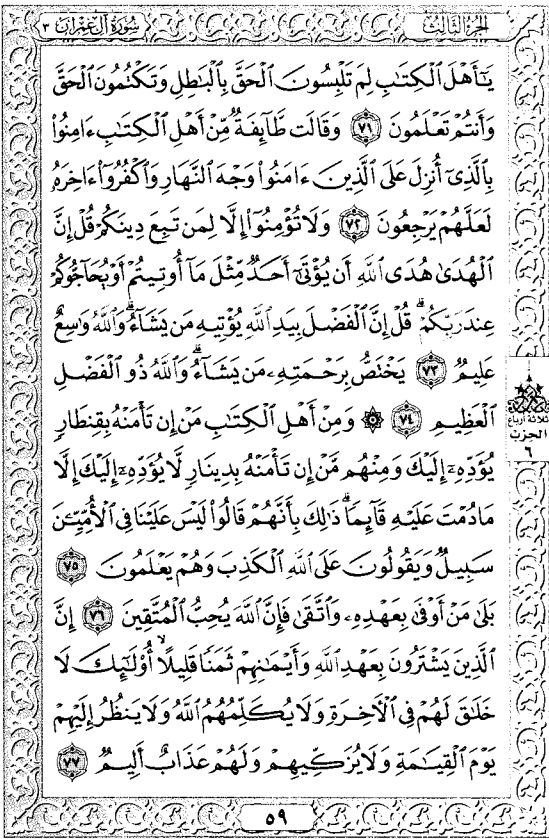 الجزء الثالث
سورة آل عمران ٣
يَـٰٓأَهۡلَ ٱلۡكِتَـٰبِ لِمَ تَلۡبِسُونَ ٱلۡحَقَّ بِٱلۡبَـٰطِلِ وَتَكۡتُمُونَ ٱلۡحَقَّ
وَأَنتُمۡ تَعۡلَمُونَ ٧١ وَقَالَت طَّآئِفَةٌ مِّنۡ أَهۡلِ ٱلۡكِتَـٰبِ ءَامِنُواْ
بِٱلَّذِيٓ أُنزِلَ عَلَى ٱلَّذِينَ ءَامَنُواْ وَجۡهَ ٱلنَّهَارِ وَٱكۡفُرُوٓاْ ءَاخِرَهُۥ
لَعَلَّهُمۡ يَرۡجِعُونَ ٧٢ وَلَا تُؤۡمِنُوٓاْ إِلَّا لِمَن تَبِعَ دِينَكُمۡ قُلۡ إِنَّ
ٱلۡهُدَىٰ هُدَى ٱللَّهِ أَن يُؤۡتَىٰٓ أَحَدٌ مِّثۡلَ مَآ أُوتِيتُمۡ أَوۡ يُحَآجُّوكُمۡ
عِندَ رَبِّكُمۡۗ قُلۡ إِنَّ ٱلۡفَضۡلَ بِيَدِ ٱللَّهِ يُؤۡتِيهِ مَن يَشَآءُۗ وَٱللَّهُ وَٰسِعٌ
عَلِيمٌ ٧٣ يَخۡتَصُّ بِرَحۡمَتِهِۦ مَن يَشَآءُۗ وَٱللَّهُ ذُو ٱلۡفَضۡلِ
ٱلۡعَظِيمِ ٧٤ ۞ وَمِنۡ أَهۡلِ ٱلۡكِتَـٰبِ مَنۡ إِن تَأۡمَنۡهُ بِقِنطَارٍ
يُؤَدِّهِۦٓ إِلَيۡكَ وَمِنۡهُم مَّنۡ إِن تَأۡمَنۡهُ بِدِينَارٍ لَّا يُؤَدِّهِۦٓ إِلَيۡكَ إِلَّا
مَا دُمۡتَ عَلَيۡهِ قَآئِمًاۗ ذَٰلِكَ بِأَنَّهُمۡ قَالُواْ لَيۡسَ عَلَيۡنَا فِي ٱلۡأُمِّيِّـۧنَ
سَبِيلٌ وَيَقُولُونَ عَلَى ٱللَّهِ ٱلۡكَذِبَ وَهُمۡ يَعۡلَمُونَ ٧٥
بَلَىٰ مَنۡ أَوۡفَىٰ بِعَهۡدِهِۦ وَٱتَّقَىٰ فَإِنَّ ٱللَّهَ يُحِبُّ ٱلۡمُتَّقِينَ ٧٦ إِنَّ
ٱلَّذِينَ يَشۡتَرُونَ بِعَهۡدِ ٱللَّهِ وَأَيۡمَـٰنِهِمۡ ثَمَنًا قَلِيلًاۙ أُوْلَـٰٓئِكَ لَا
خَلَـٰقَ لَهُمۡ فِي ٱلۡأٓخِرَةِ وَلَا يُكَلِّمُهُمُ ٱللَّهُ وَلَا يَنظُرُ إِلَيۡهِمۡ
يَوۡمَ ٱلۡقِيَـٰمَةِ وَلَا يُزَكِّيهِمۡ وَلَهُمۡ عَذَابٌ أَلِيمٌ ٧٧
ثلاثة أرباع
الحزب
٦
٥٩